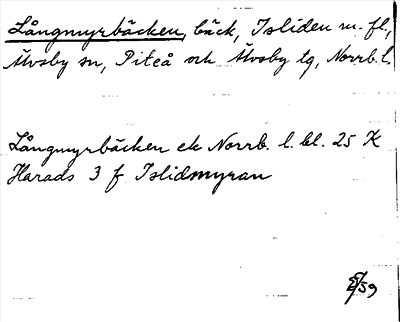 Långmyrbäcken, bäck, Isliden m. fl.,
Älvsby sn, Piteå och Älvsby tg, Norrb. l.
Långmyrbäcken ek Norrb. l. bl. 25 K
Harads 3 f Islidmyran
/59